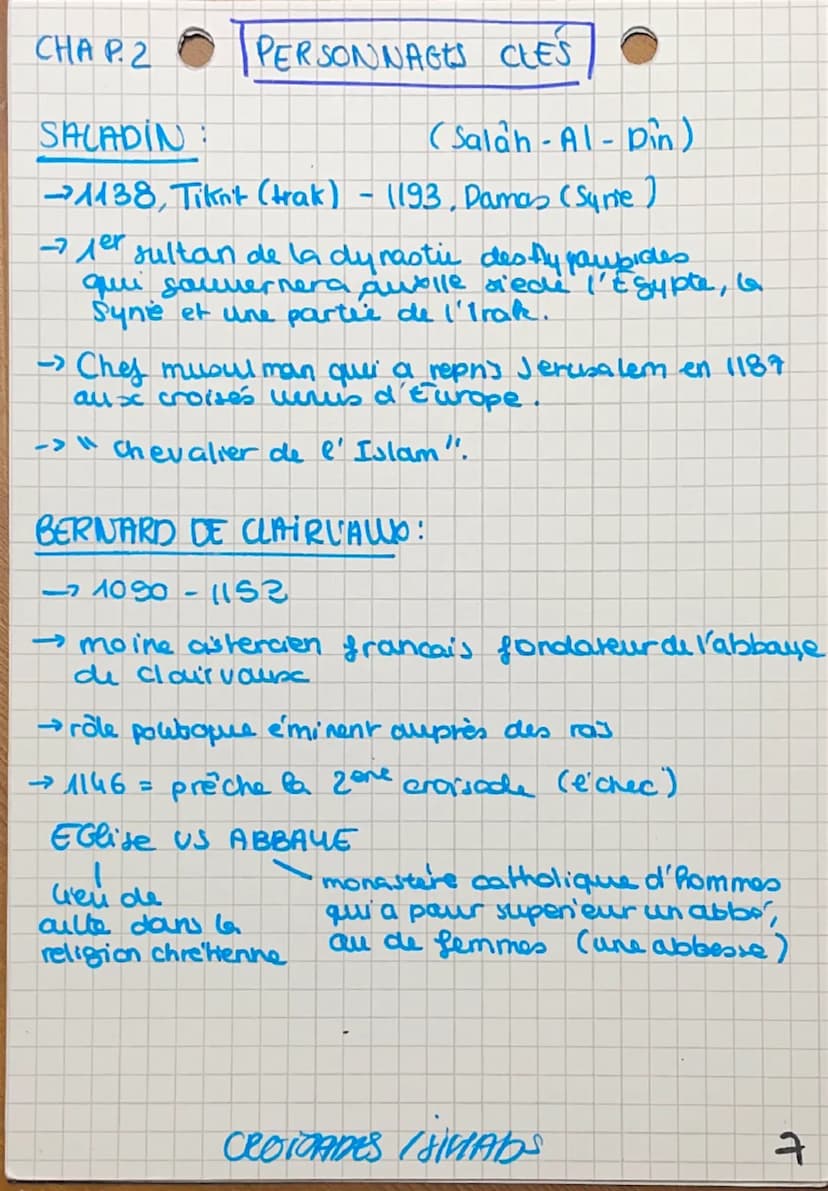 CHAP.2 PERSONNAGES CLES
SALADIN : (Salâh-Al-Dîn)
→ 1138, Tikrit (Irak) - 1193, Damas (Syrie)
→ 1er sultan de la dynastie des Ayyoubides
qui gouvernera au XIIe siècle l'Égypte, la
Syrie et une partie de l'Irak.
→ Chef musulman qui a repris Jerusalem en 1187
aux croisés venus d'Europe.
-> " Chevalier de l'Islam".
BERNARD DE CLAIRVAUX :
→ 1090 - 1152
→ moine cistercien francais fondateur de l'abbaye
de Clairvaux
→ rôle politique éminent auprès des rois
→ 1146 = prêche la 2ème croisade (échec)
EGlise VS ABBAYE
lieu de
culte dans la
religion chrétienne
monastère catholique d'hommes
qui a pour supérieur un abbé,
ou de femmes (une abbesse)
CROISADES / JIHADS
7